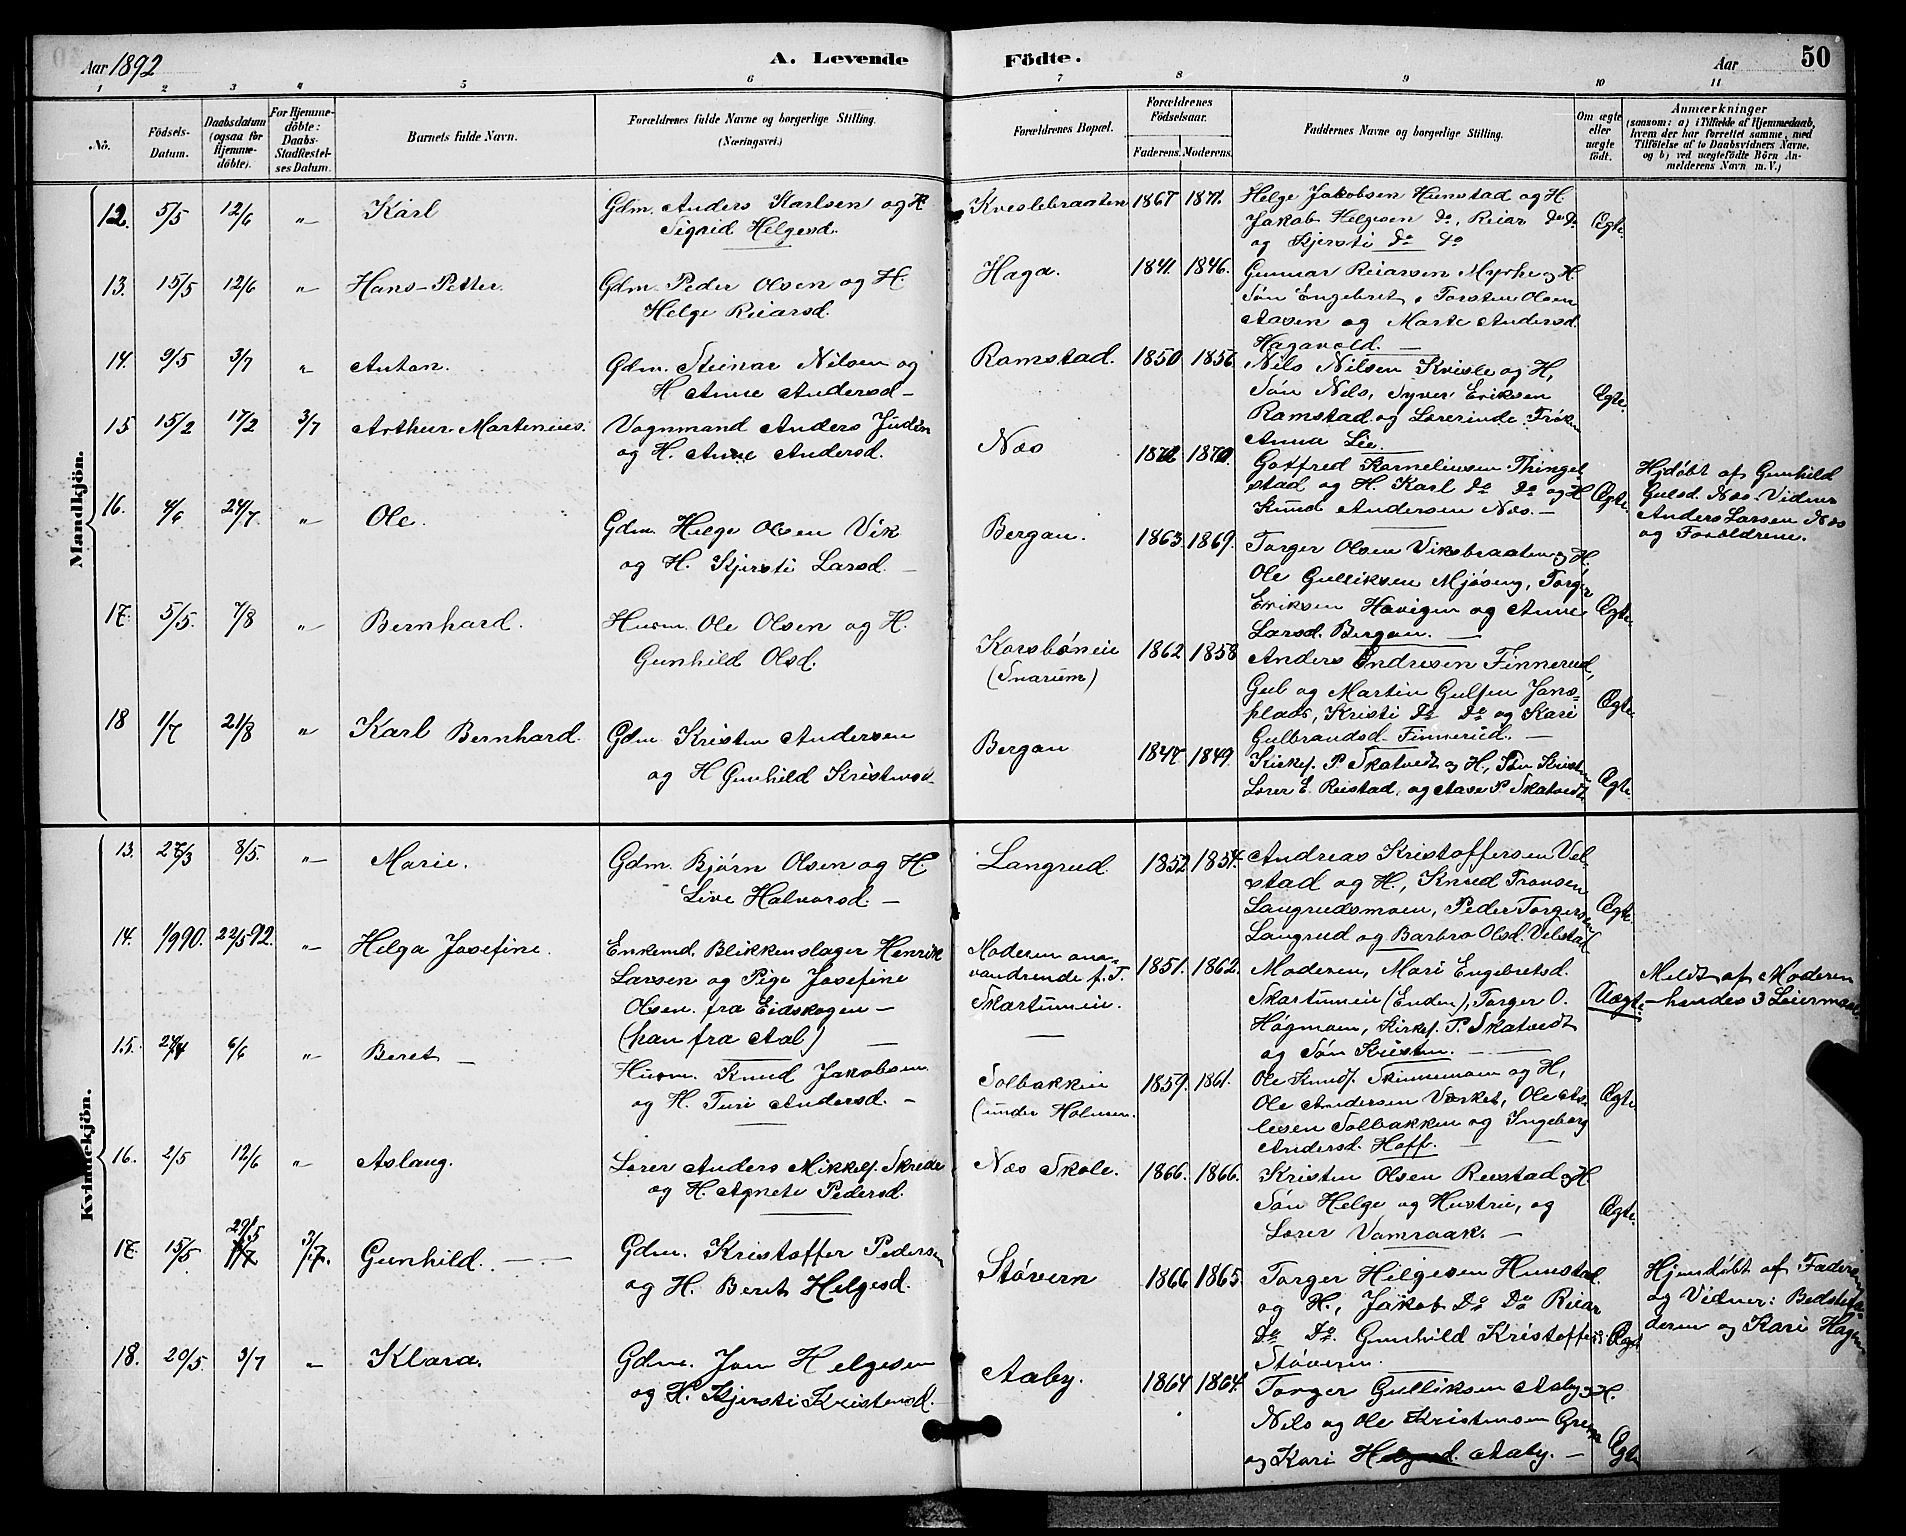 Aar 1892
A. Levende
Födte.
Aar
50
1 2 3 4 5 6 7 8 9 10 11
No.
Födsels-
Datum.
Daabsdatum
(ogsaa for
Hjemme-
döbte).
For Hjemme-
döbte:
Daabs-
Stadfæstel-
ses Datum.
Barnets fulde Navn.
Forældrenes fulde Navne og borgerlige Stilling.
(Næringsvei.)
Forældrenes Bopæl.
Forældrenes
Födselsaar.
Faderens. Moderens.
Faddernes Navne og borgerlige Stilling.
Om ægte
eller
uægte
født.
Anmærkninger
(saasom: a) i Tilfælde af Hjemmedaab,
hvem der har forrettet samme, med
Tilföielse af to Daabsvidners Navne,
og b) ved uægtefödte Börn An-
melderens Navn m. V.)
Mandkjön.
12. 5/5 12/6 " Karl
Gdm. Anders Karlsen og H
Sigrid Helgesd.
Kveslebraaten 1867 1871.
Helge Jakobsen Hunstad og H
Jakob Helgesen do, Reiar do do
og Kjersti do do
Ægte.
13. 15/5 12/6 " Hans-Petter.
Gdm. Peder Olsen og H.
Helge Reiarsd.
Haga. 1841. 1846.
Gunnar Reiarsen Myrhe og H.
Søn Engebret, Torsten Olsen
Aasen og Marte Andersd.
Hagavold. —
14. 9/5 3/7 " Anton.
Gdm. Steinar Nilsen og
H Anne Andersd —
Ramstad. 1850 1856.
Nils Nilsen Kvisle og H,
Søn Nils, Syver Eriksen
Ramstad og Lærerinde Frøken
Anna Lie.
Ægte.
15 15/2 17/2 3/7 Arthur Martenius.
Vognmand Anders Juden
og H. Anne Andersd.
Næs 1872 1870.
Gotfred Korneliusen Thingel-
stad og H. Karl do do og H
Knud Andersen Næs. —
Ægte.
Hjdøbt af Gunhild
Gulsd. Næs. Vidner
Anders Larsen Næs
og Forældrene.
16. 4/6 24/7 " Ole.
Gdm. Helge Olsen Vik
og H. Kjersti Larsd. —
Bergan. 1863. 1869.
Torger Olsen Viksbraaten og H.
Ole Gulliksen Mjøseng, Torger
Eriksen Havigen og Anne
Larsd. Bergan. —
Ægte.
17. 5/5. 7/8 " Bernhard.
Husm. Ole Olsen og H.
Gunhild Olsd.
Korsbøneie
(Snarum)
1862 1858
Anders Endresen Finnerud,
Gul og Martin Gulsen Jons-
plads, Kristi do do og Kari
Gulbrandsd. Finnerud. —
Ægte.
18 1/7 21/8 " Karl Bernhard.
Gdm Kristen Andersen
og H Gunhild Kristensd —
Bergan 1847. 1849.
Kirkes. P Skatvedt og H, Søn Kristen
Lærer E. Reistad, og Aase P. Skatvedt.
Ægte.
Kvindekjön.
13. 27/3 8/5. " Marie.
Gdm. Bjørn Olsen og H
Live Halvorsd. —
Langrud. 1852 1854.
Andreas Kristoffersen Vel-
stad og H., Knud Tronsen
Langrudsmoen, Peder Torgersen
Langrud og Barbro Olsd. Velstad
Ægte
14. 1/9 90. 22/5 92. " Helga Josefine.
Enkemd. Blikkenslager Henrik
Larsen og Pige Josefine
Olsen. fra Eidskogen —
(han fra Aal) —
Moderen om-
vandrende p. T.
Skartumeie.
1851. 1862.
Moderen, Mari Engebretsd.
Skartumeie (Enden), Torger O.
Høgmoen, Kirkes. P. Skatvedt
og Søn Kristen. —
Uægte.
Meldt af Moderen
— hendes 3 Leiermaal.
15. 27/4 6/6 " Beret —
Husm. Knud Jakobsen
og H. Turi Andersd. —
Solbakken
(under Holmen.
1859. 1861.
Ole Knuds. Skinnemoen og H,
Ole Andersen Værket, Ole As-
lesen Solbakken og Ingeborg
Andersd. Hoff. —
Ægte.
16. 2/5 12/6 " Aslaug.
Lærer Anders Mikkels. Skrede
og H. Agnete Pedersd.
Næs Skole. 1866. 1866.
Kristen Olsen Reistad og H.
Søn Helge og Hustru, og
Lærer Vamraak. —
Ægte.
17. 15/5 29/5 3/7. Gunhild.
Gdm. Kristoffer Pedersen
og H. Beret Helgesd.
Støvern 1866 1865.
Torger Helgesen Hunstad.
og H., Jakob do do Reiar
do do. Gunhild Kristoffers
Støveren.
Ægte
Hjemdøbt af Faderen
og Vidner: Bedstefa-
deren og Kari Hagen
18. 20/5. 3/7 " Klara.
Gdm. Jon Helgesen
og H. Kjersti Kristensd. —
Aaby. 1864 1864.
Torger Gulliksen Aaby og H.
Nils og Ole Kristensen Gren
og Kari Aaby. —
Ægte